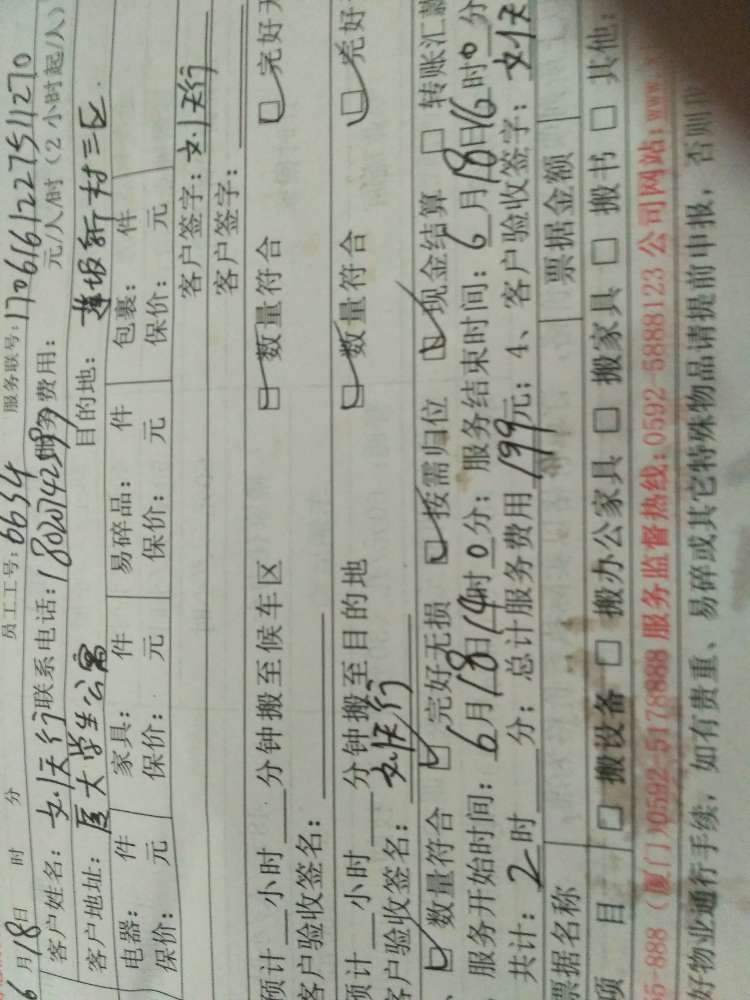 6月18日 时 分 员工工号:6634 服务联号:1706161227511270
客户姓名: 联系电话: 服务费用: 元/人/时（2小时起/人）
客户地址:厦大学生公寓 目的地: 新村三区
电器: 件 家具: 件 易碎品: 件 包裹: 件
保价: 元 保价: 元 保价: 元 保价: 元
客户签字:
客户签字:
预计 小时 分钟搬至候车区 数量符合 完好无
客户验收签名:
预计 小时 分钟搬至目的地 数量符合 完好
客户验收签名:
数量符合 完好无损 按需归位 现金结算 转账汇款
服务开始时间:6月18日14时0分; 服务结束时间:6月18日16时0分
共计:2时 分; 总计服务费用199元; 4、客户验收签字:
票据名称 票据金额
项目 搬设备 搬办公家具 搬家具 搬书 其他:
5-888（厦门）0592-5178888 服务监督热线:0592-5888123 公司网站:www.
好物业通行手续, 如有贵重、易碎或其它特殊物品请提前申报, 否则